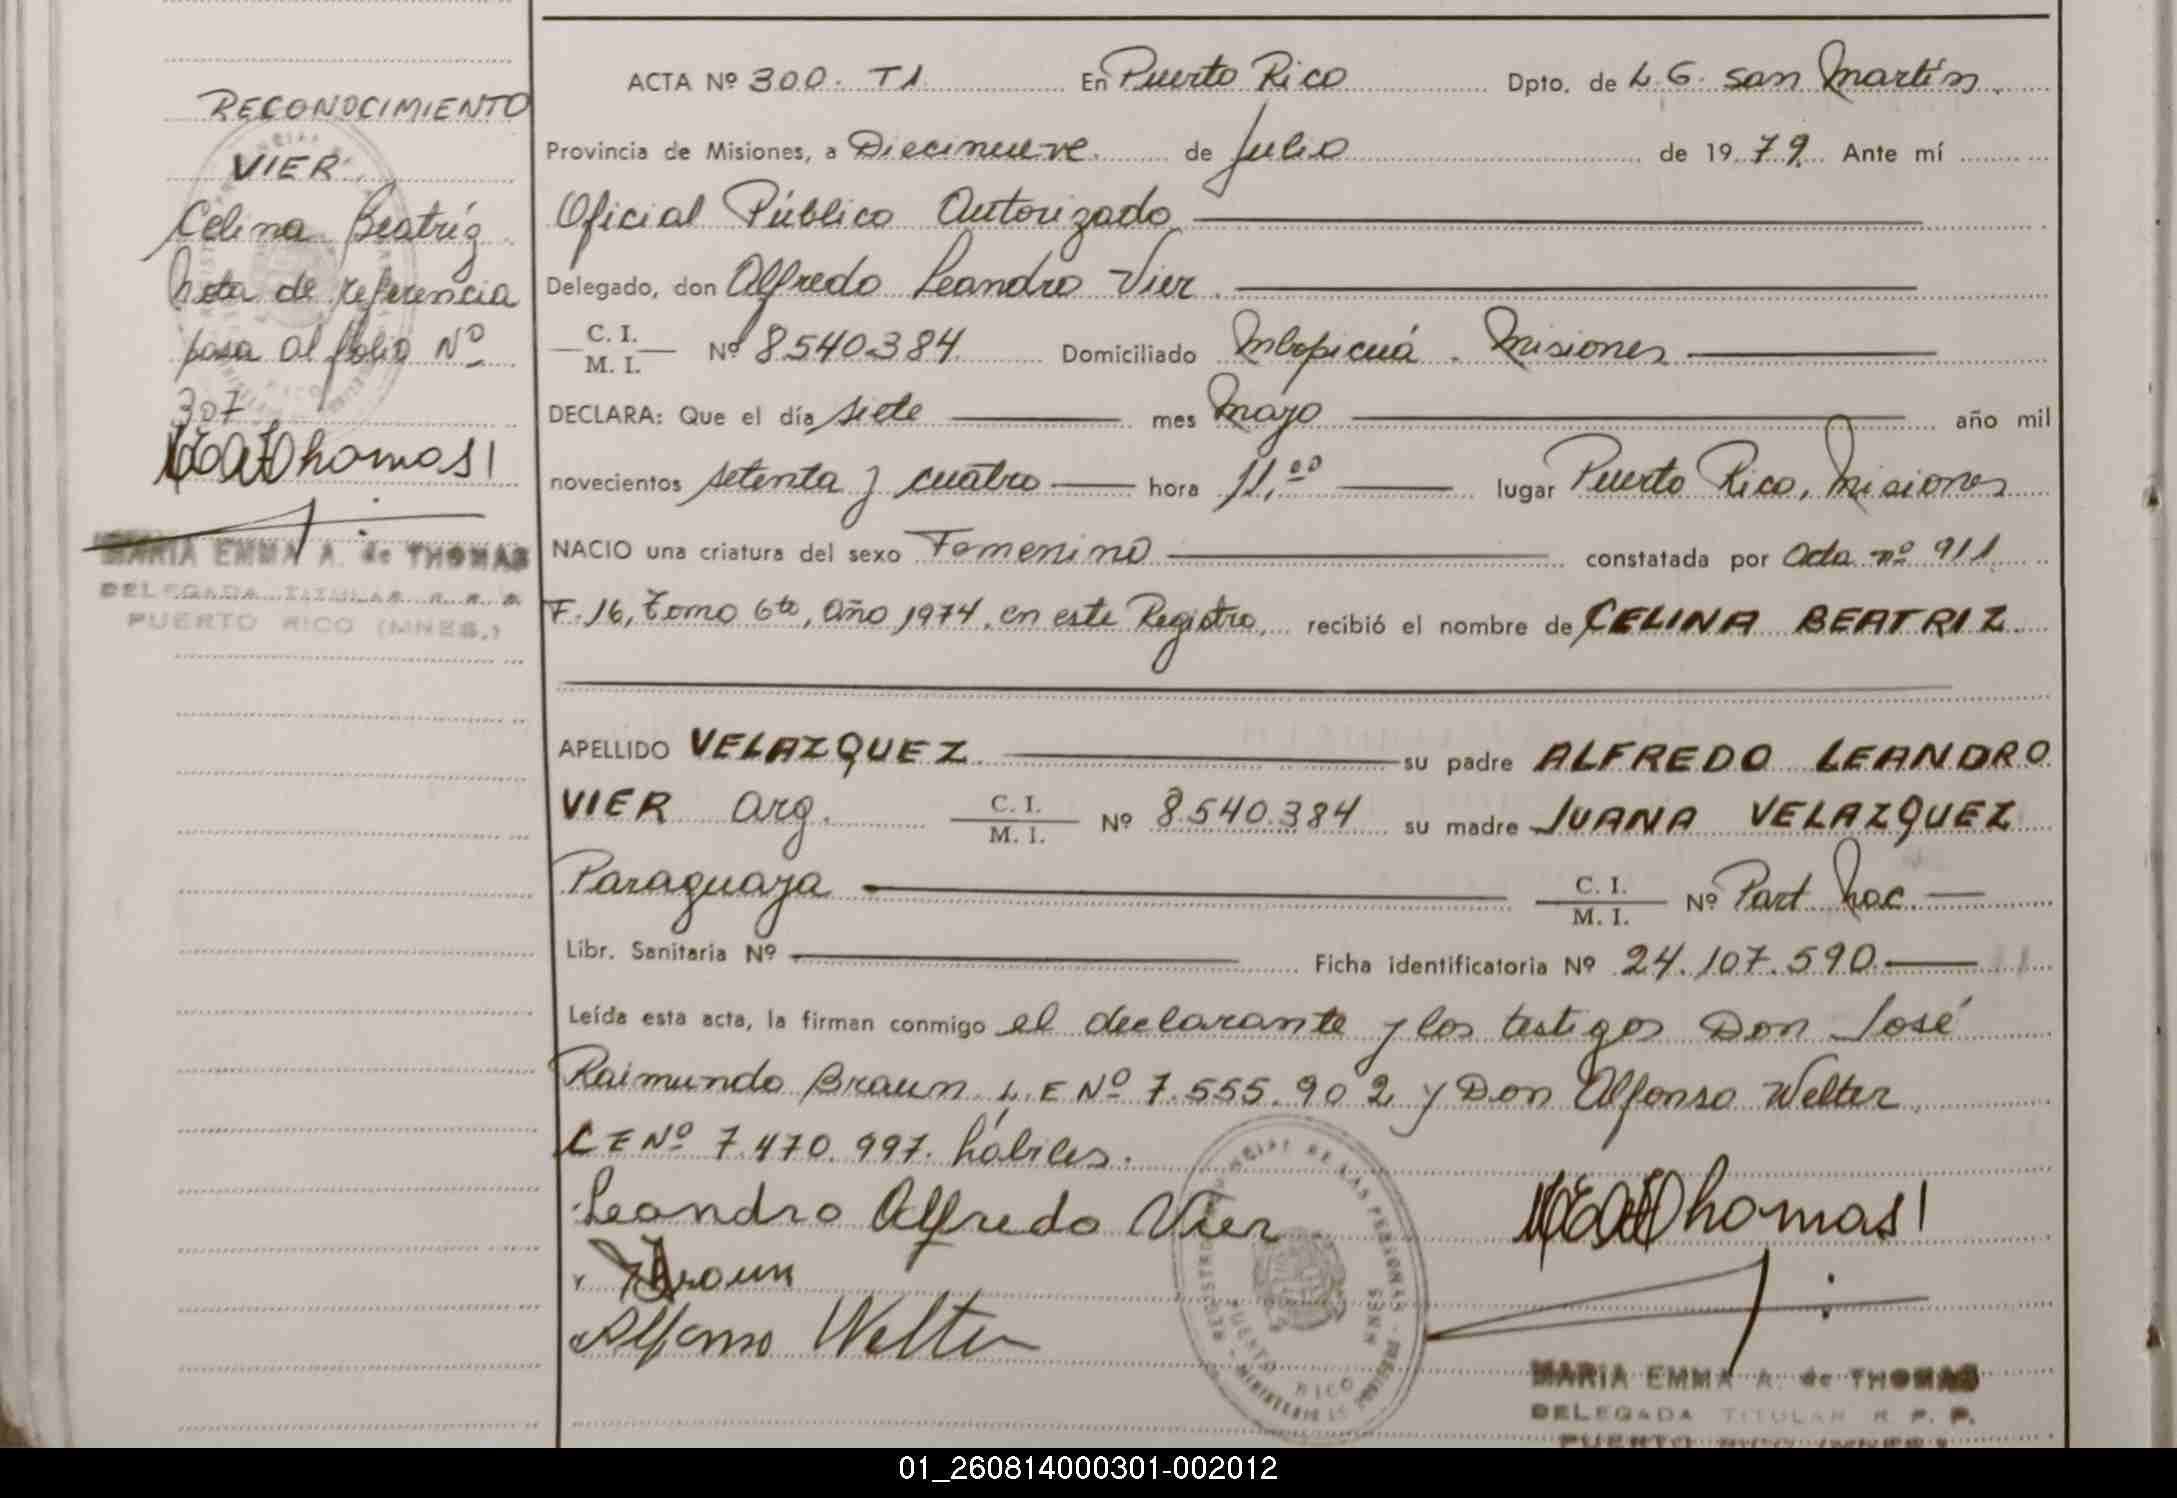 RECONOCIMIENTO
VIER
Celina Beatríz
Nota de referencia
pasa al folio Nº
307
MEAdThomas
MARIA EMMA A. de THOMAS
DELEGADA TITULAR R. P. P.
PUERTO RICO (MNES.)
ACTA Nº 300. T1. En Puerto Rico Dpto. de L. G. San Martín
Provincia de Misiones, a Diecinueve de Julio de 1979. Ante mí
Oficial Público Autorizado
Delegado, don Alfredo Leandro Vier
C. I.
M. I. Nº 8540384 Domiciliado Mbopicuá. Misiones
DECLARA: Que el día siete mes Mayo año mil
novecientos setenta y cuatro hora 11,ºº lugar Puerto Rico, Misiones
NACIO una criatura del sexo Femenino constatada por Acta nº 911
F. 16, Tomo 6to, año 1974, en este Registro, recibió el nombre de CELINA BEATRIZ
APELLIDO VELAZQUEZ su padre ALFREDO LEANDRO
VIER arg. C. I.
M. I. Nº 8.540.384 su madre JUANA VELAZQUEZ
Paraguaya C. I.
M. I. Nº Part.
Libr. Sanitaria Nº Ficha identificatoria Nº 24.107.590
Leída esta acta, la firman conmigo el declarante y los testigos Don José
Raimundo Braun L.E Nº 7.555.902 y Don Alfonso Welter
C E Nº 7.470.997. hábiles.
Leandro Alfredo Vier
Braun
Alfonso Welter
MEAdThomas
REGISTRO PROVINCIAL DE LAS PERSONAS
PUERTO RICO
MNES
MARIA EMMA A. de THOMAS
DELEGADA TITULAR R. P. P.
PUERTO RICO (MNES.)
01_260814000301-002012